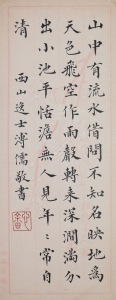 山中有流水借問不知名映地為
天色飛空作雨聲轉來深澗滿分
出小池平恬澹無人見年〻常自
清　西山逸士溥儒敬書